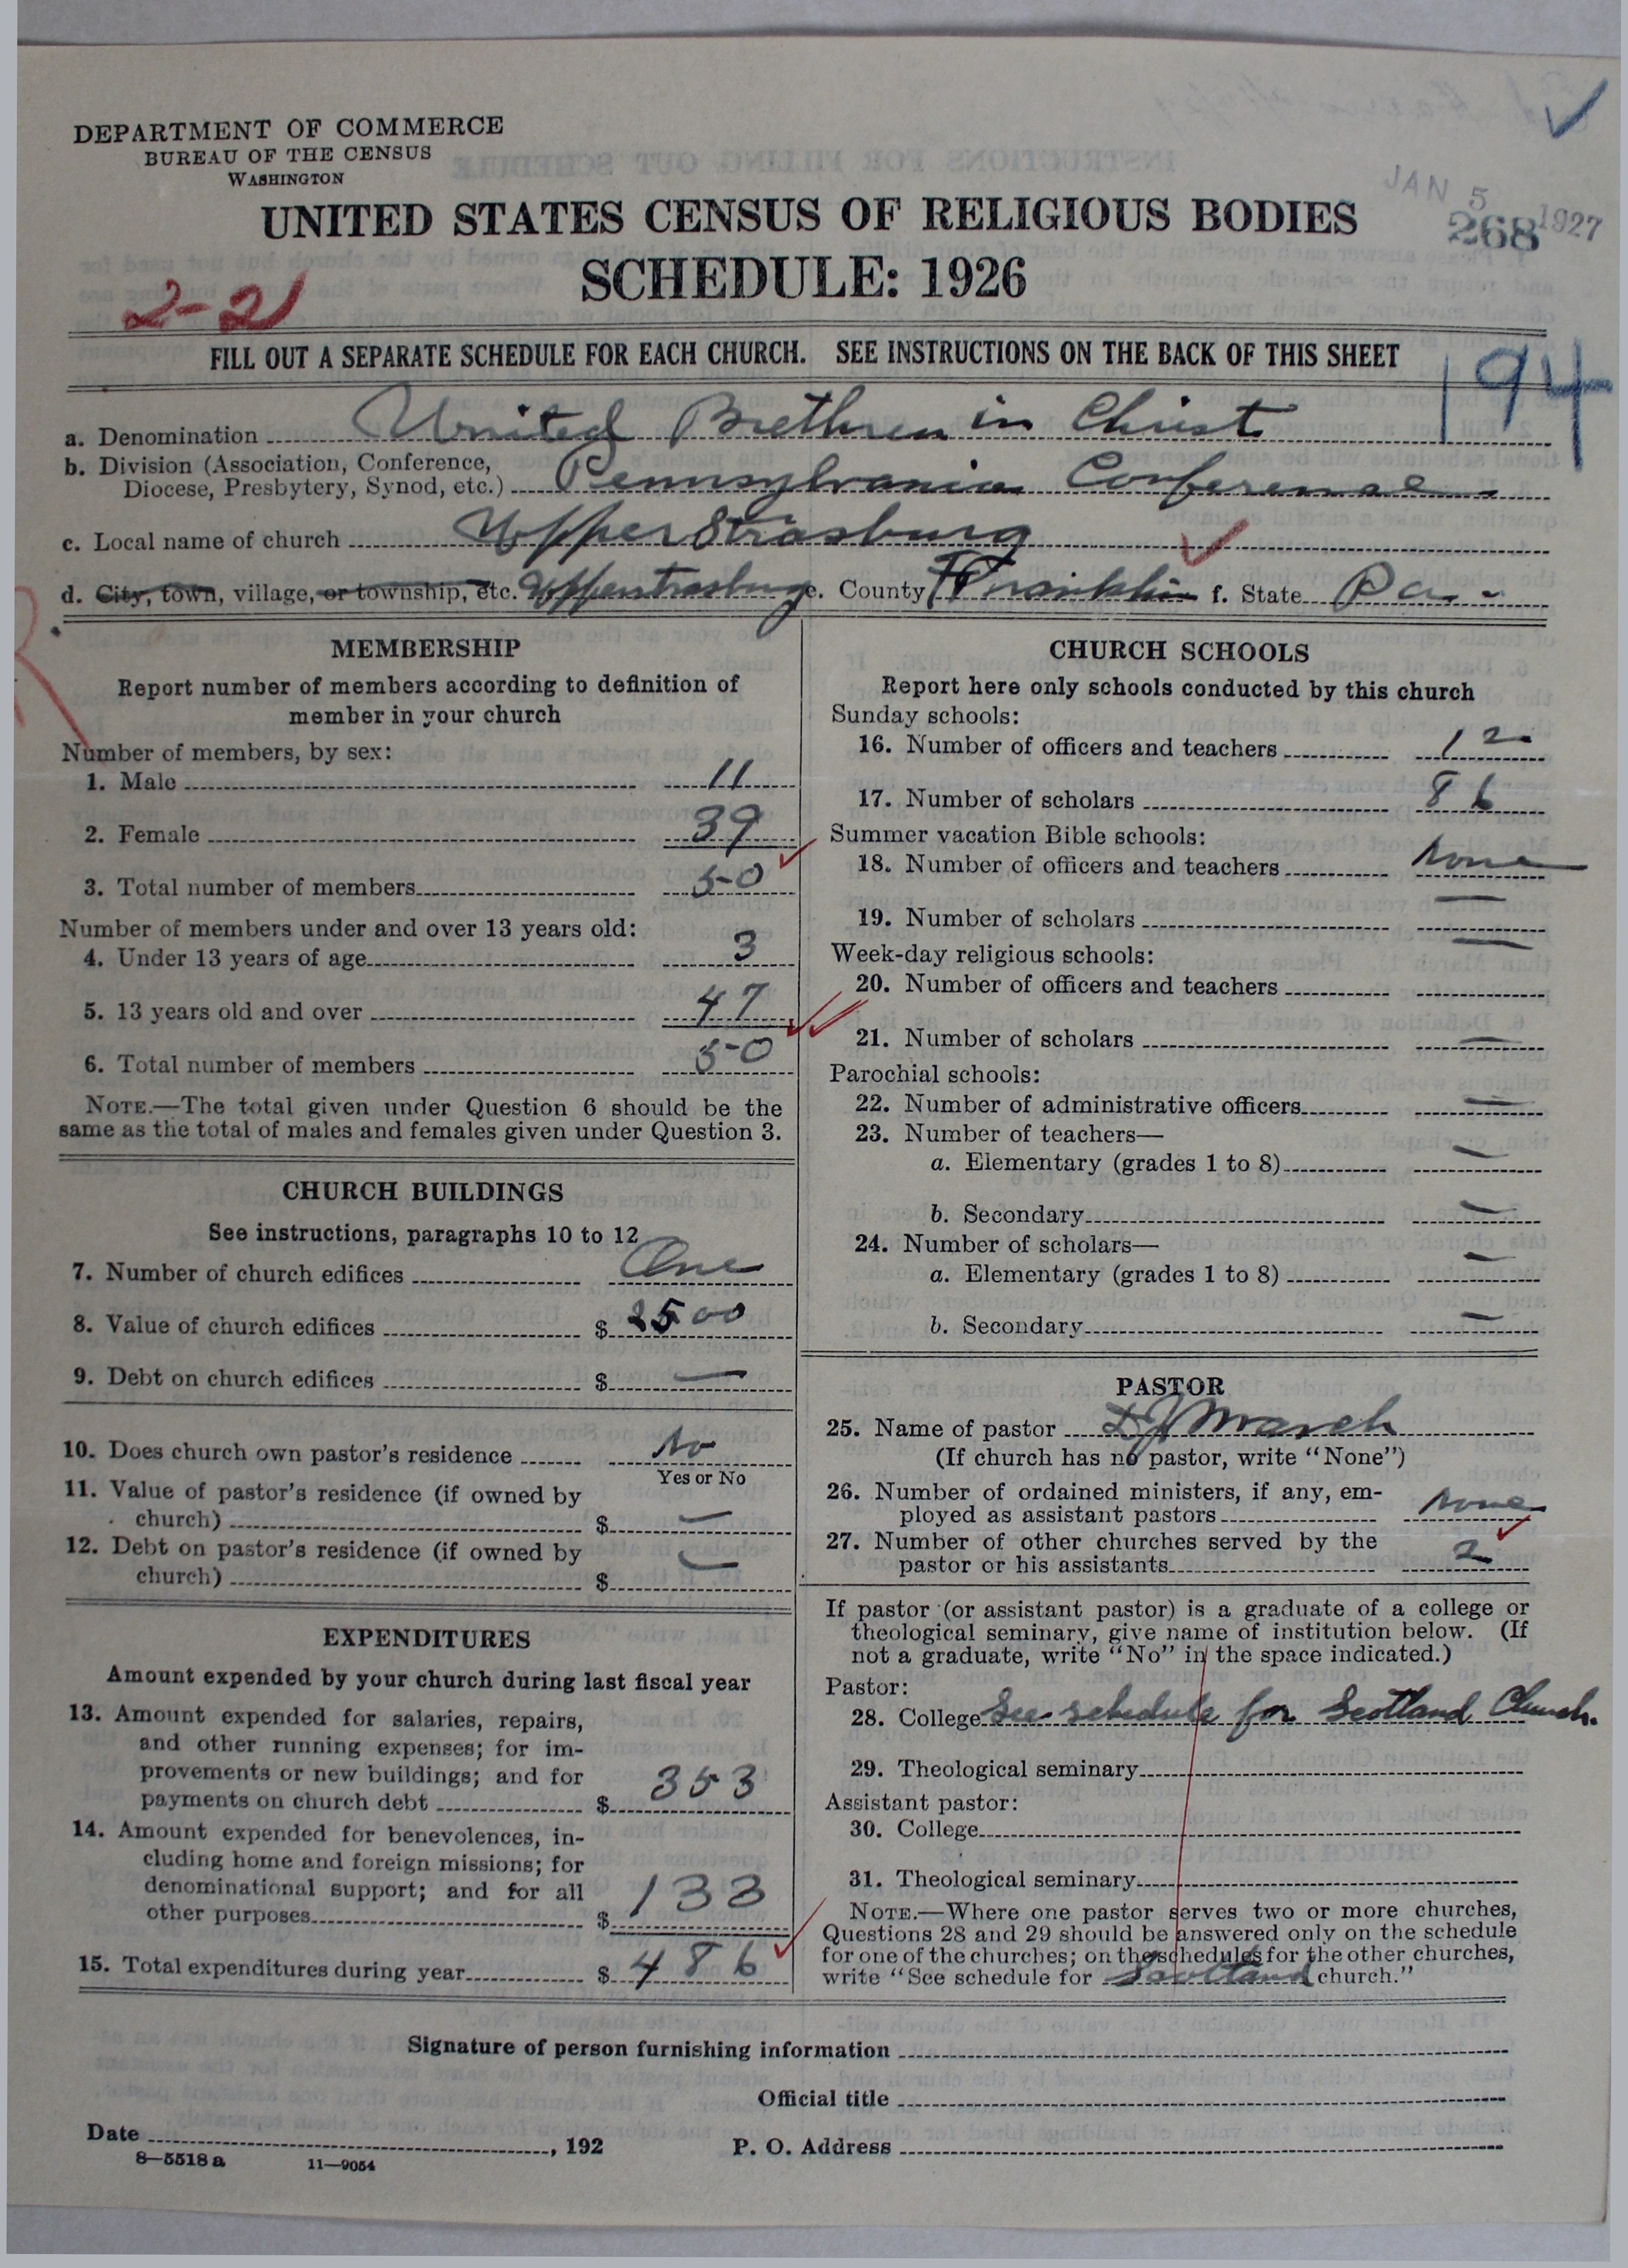 DEPARTMENT OF COMMERCE
BUREAU OF THE CENSUS
WASHINGTON
UNITED STATES CENSUS OF RELIGIOUS BODIES
SCHEDULE: 1926
JAN 5 1927
268
2-21
FILL OUT A SEPARATE SCHEDULE FOR EACH CHURCH. SEE INSTRUCTIONS ON THE BACK OF THIS SHEET
194
a. Denomination United Brethren in Christ
b. Division (Association, Conference,
Diocese, Presbytery, Synod, etc.) Pennsylvania Conference
c. Local name of church Upper Strasburg
d. City, town, village, or township, etc. Upperstrasburg e. County Franklin f. State Pa.
MEMBERSHIP
Report number of members according to definition of
member in your church
Number of members, by sex:
1. Male 11
2. Female 39
3. Total number of members 50
Number of members under and over 13 years old:
4. Under 13 years of age 3
5. 13 years old and over 47
6. Total number of members 50
NOTE.—The total given under Question 6 should be the
same as the total of males and females given under Question 3.
CHURCH BUILDINGS
See instructions, paragraphs 10 to 12
7. Number of church edifices One
8. Value of church edifices $ 2500
9. Debt on church edifices $ —
10. Does church own pastor's residence No
Yes or No
11. Value of pastor's residence (if owned by
church) $ —
12. Debt on pastor's residence (if owned by
church) $ —
EXPENDITURES
Amount expended by your church during last fiscal year
13. Amount expended for salaries, repairs,
and other running expenses; for im-
provements or new buildings; and for
payments on church debt $ 353
14. Amount expended for benevolences, in-
cluding home and foreign missions; for
denominational support; and for all
other purposes $ 133
15. Total expenditures during year $ 486
CHURCH SCHOOLS
Report here only schools conducted by this church
Sunday schools:
16. Number of officers and teachers 12
17. Number of scholars 86
Summer vacation Bible schools:
18. Number of officers and teachers None
19. Number of scholars —
Week-day religious schools:
20. Number of officers and teachers —
21. Number of scholars —
Parochial schools:
22. Number of administrative officers —
23. Number of teachers—
a. Elementary (grades 1 to 8) —
b. Secondary —
24. Number of scholars—
a. Elementary (grades 1 to 8) —
b. Secondary —
PASTOR
25. Name of pastor March
(If church has no pastor, write "None")
26. Number of ordained ministers, if any, em-
ployed as assistant pastors None
27. Number of other churches served by the
pastor or his assistants 2
If pastor (or assistant pastor) is a graduate of a college or
theological seminary, give name of institution below. (If
not a graduate, write "No" in the space indicated.)
Pastor:
28. College See schedule for Scotland Church.
29. Theological seminary
Assistant pastor:
30. College
31. Theological seminary
NOTE.—Where one pastor serves two or more churches,
Questions 28 and 29 should be answered only on the schedule
for one of the churches; on the schedules for the other churches,
write "See schedule for Scotland church."
Signature of person furnishing information
Official title
Date , 192
P. O. Address
8—5518 a 11—9054